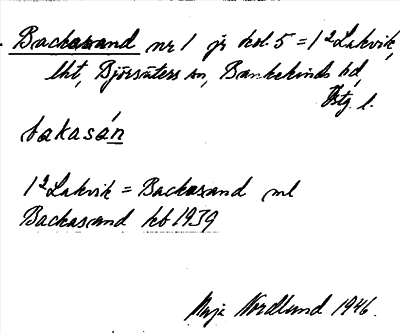 Backasand nr 1 jr kol. 5 = 1 2 Lakvik,
lht, Björsäters sn, Bankekinds hd,
Östg. l.
bakasán
1 2 Lakvik = Backasand ml
Backasand kb 1939
Maja Nordlund 1946.